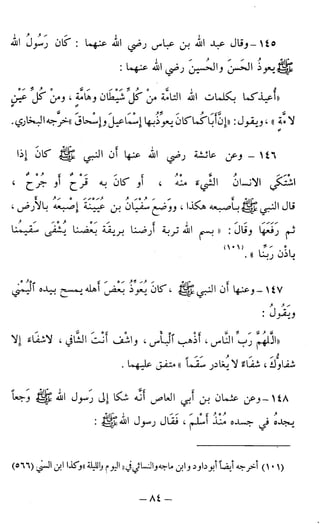 ١٤٥ - وقال عبد الله بن عباس رضي الله عنهما : كان رَسُولُ الله
ﷺ يعوذُ الحَسَنَ والحُسينَ رضي الله عنهما :
« أُعيذُكما بكلمات الله التامَّة منْ كُلِّ شيْطان وهَامَّة ، ومنْ كلِّ عَيْنٍ
لامَّة » ، ويقول : « إِنَّ أَبَاكُما كَانَ يعوذُ بها إِسْمَاعيلَ وإِسْحَاقَ » خرجه البخاري .
١٤٦ - وعن عائشة رضي الله عنها أن النبي ﷺ كانَ إذا
اشتكى الانسانُ الشيءَ منْهُ ، أو كانَ به قَرْحٌ أو جُرْحٌ ،
قال النبي ﷺ بأصبعه هكذا ، ووضع سفيَانُ بن عيينةَ إصبعَهُ بالأرض ،
ثم رَفَعَها وقالَ : « بسم الله تربة أرضنا بريقة بعضنا يُشْفَى سقيمُنا
بإذن رَبِّنا » . (١٠١)
١٤٧ - وعنها أن النبي ﷺ ، كانَ يُعوِّذُ بَعْضَ أهله يمسح بيده اليُمْنى
ويقُولُ :
« اللَّهُمَّ رَبَّ النَّاس ، أَذهب الْبَأس ، واشف أَنْتَ الشَّافي ، لا شفَاءَ إلا
شفاؤُكَ ، شفَاءً لا يُغَادر سَقَماً » متفق عليهما .
١٤٨ - وعن عثمان بن أبي العاص أنَّه شكا إلى رَسول الله ﷺ وَجعاً
يجدهُ في جسده مُنْذُ أَسْلَمَ ، فَقَالَ رسول الله ﷺ :
(١٠١) أخرجه أيضاً أبو داود وابن ماجه والنسائي في « اليوم والليلة » وكذا ابن السني (٥٦٦)
– ٨٤ –